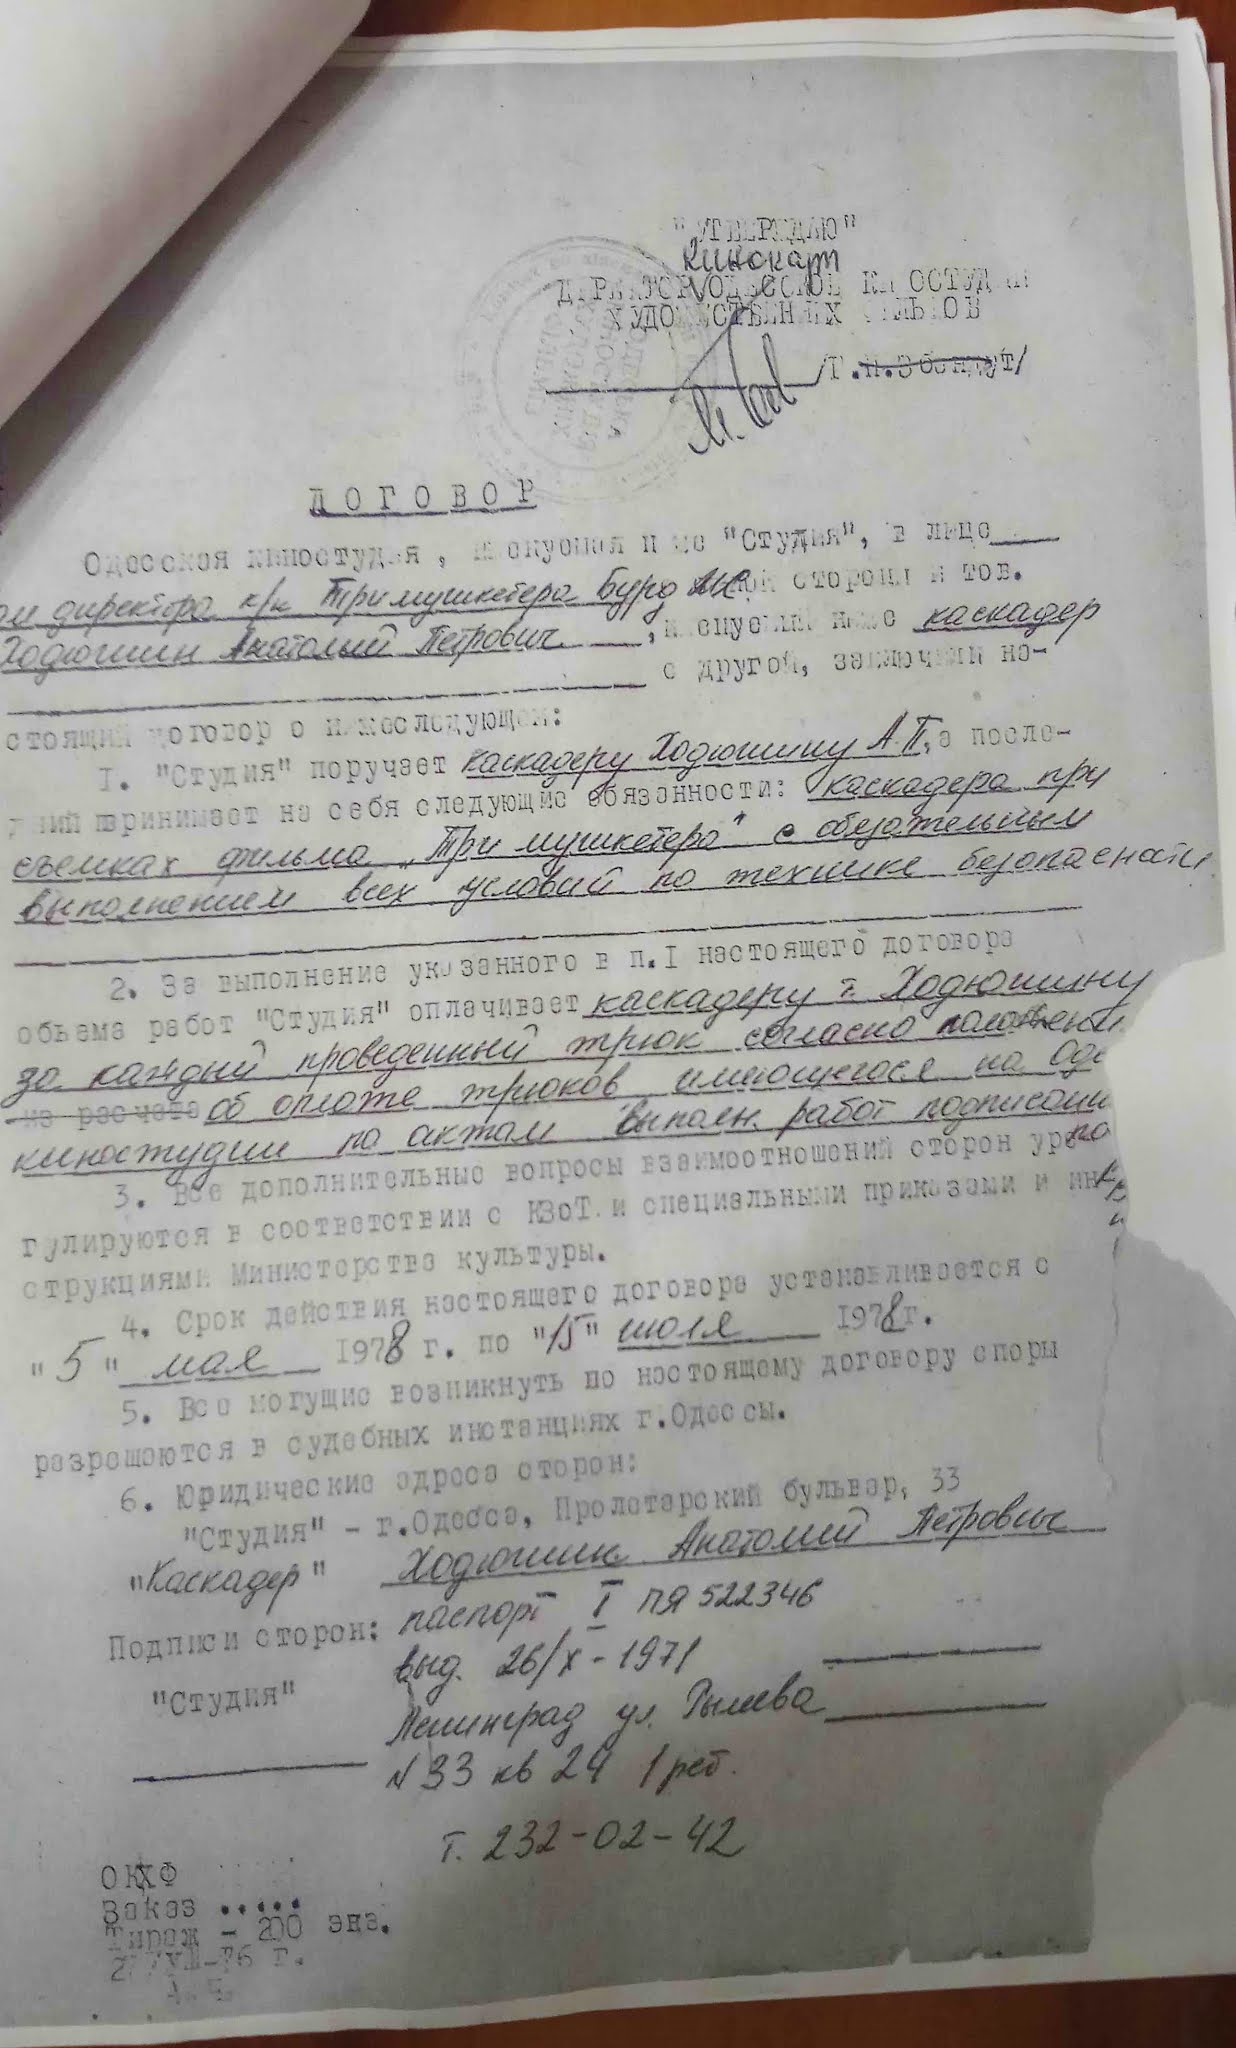 "УТВЕРЖДАЮ"
Кинокарт
ДИРЕКТОР ОДЕССКОЙ КИНОСТУДИИ
ХУДОЖЕСТВЕННЫХ ФИЛЬМОВ
/Г.П.Збандут/
ДОГОВОР
Одесская киностудия, именуемая ниже "Студия", в лице
директора к/к Три мушкетера стороны и тов.
Ходюшин Анатолий Петрович, именуемый ниже каскадер
с другой, заключили на-
стоящий договор о нижеследующем:
1. "Студия" поручает каскадеру Ходюшину А.П, а после-
дний принимает на себя следующие обязанности: каскадера при
съемках фильма „Три мушкетера" с обязательным
выполнением всех условий по технике безопасности
2. За выполнение указанного в п.I настоящего договора
объема работ "Студия" оплачивает каскадеру т. Ходюшину
за каждый проведенный трюк согласно положени
из расчета об оплате трюков имеющегося на Оде
киностудии по актам выполн. работ подписани
3. Все дополнительные вопросы взаимоотношений сторон уре-
гулируются в соответствии с КЗоТ и специальными приказами и ин-
струкциями Министерства культуры.
4. Срок действия настоящего договора устанавливается с
"5" мая 1978 г. по "15" июля 1978 г.
5. Все могущие возникнуть по настоящему договору споры
разрешаются в судебных инстанциях г.Одессы.
6. Юридические адреса сторон:
"Студия" - г.Одесса, Пролетарский бульвар, 33
"Каскадер" Ходюшин Анатолий Петрович
паспорт I ПЯ 522346
Подписи сторон:
выд. 26/X-1971
"Студия"
Ленинград ул. Рылеева
N 33 кв 24 1 реб.
Т. 232-02-42
ОКХФ
Заказ .....
Тираж - 200 экз.